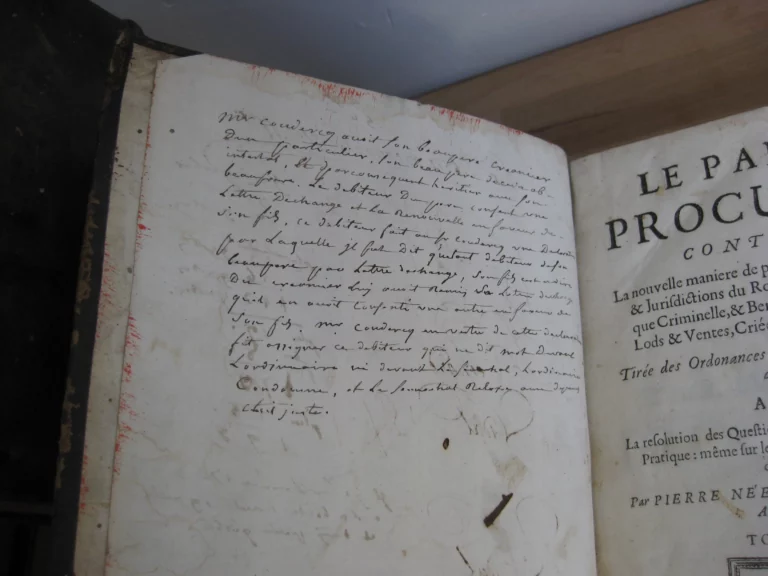 mr Coudercq avoit son beaupere creancier
Dun particulier, son beau pere decéda ab
intestat, et parconsequent heritier avec son
beaufrere. Le debiteur Du pere consent une
Lettre Dechange et La Renouvelle en faveur de
son fils, ce debiteur fait au sr Coudercq une Declaration
par Laquelle jl fut Dit qu'étant debiteur de son
beaupere par Lettre dechange, son fils
Du creancier Luy avoit Remis La Lettre dechange
quil en avoit Consenti une autre en faveur du
son fils. mr Coudercq en vertu de cette declaration
fit assigner ce debiteur qui ne dit mot Devant
Lordinnaire ni devant Le senechal, Lordinaire
Condamne, et Le senechal Relaxe avec depens
cela est juste.
LE PA
PROCU
CONT
La nouvelle maniere de p
& Jurisdictions du Ro
que Criminelle, & Be
Lods & Ventes, Criée
Tirée des Ordonances
A
La resolution des Questi
Pratique : même sur le
Par PIERRE NÉE
A
TO